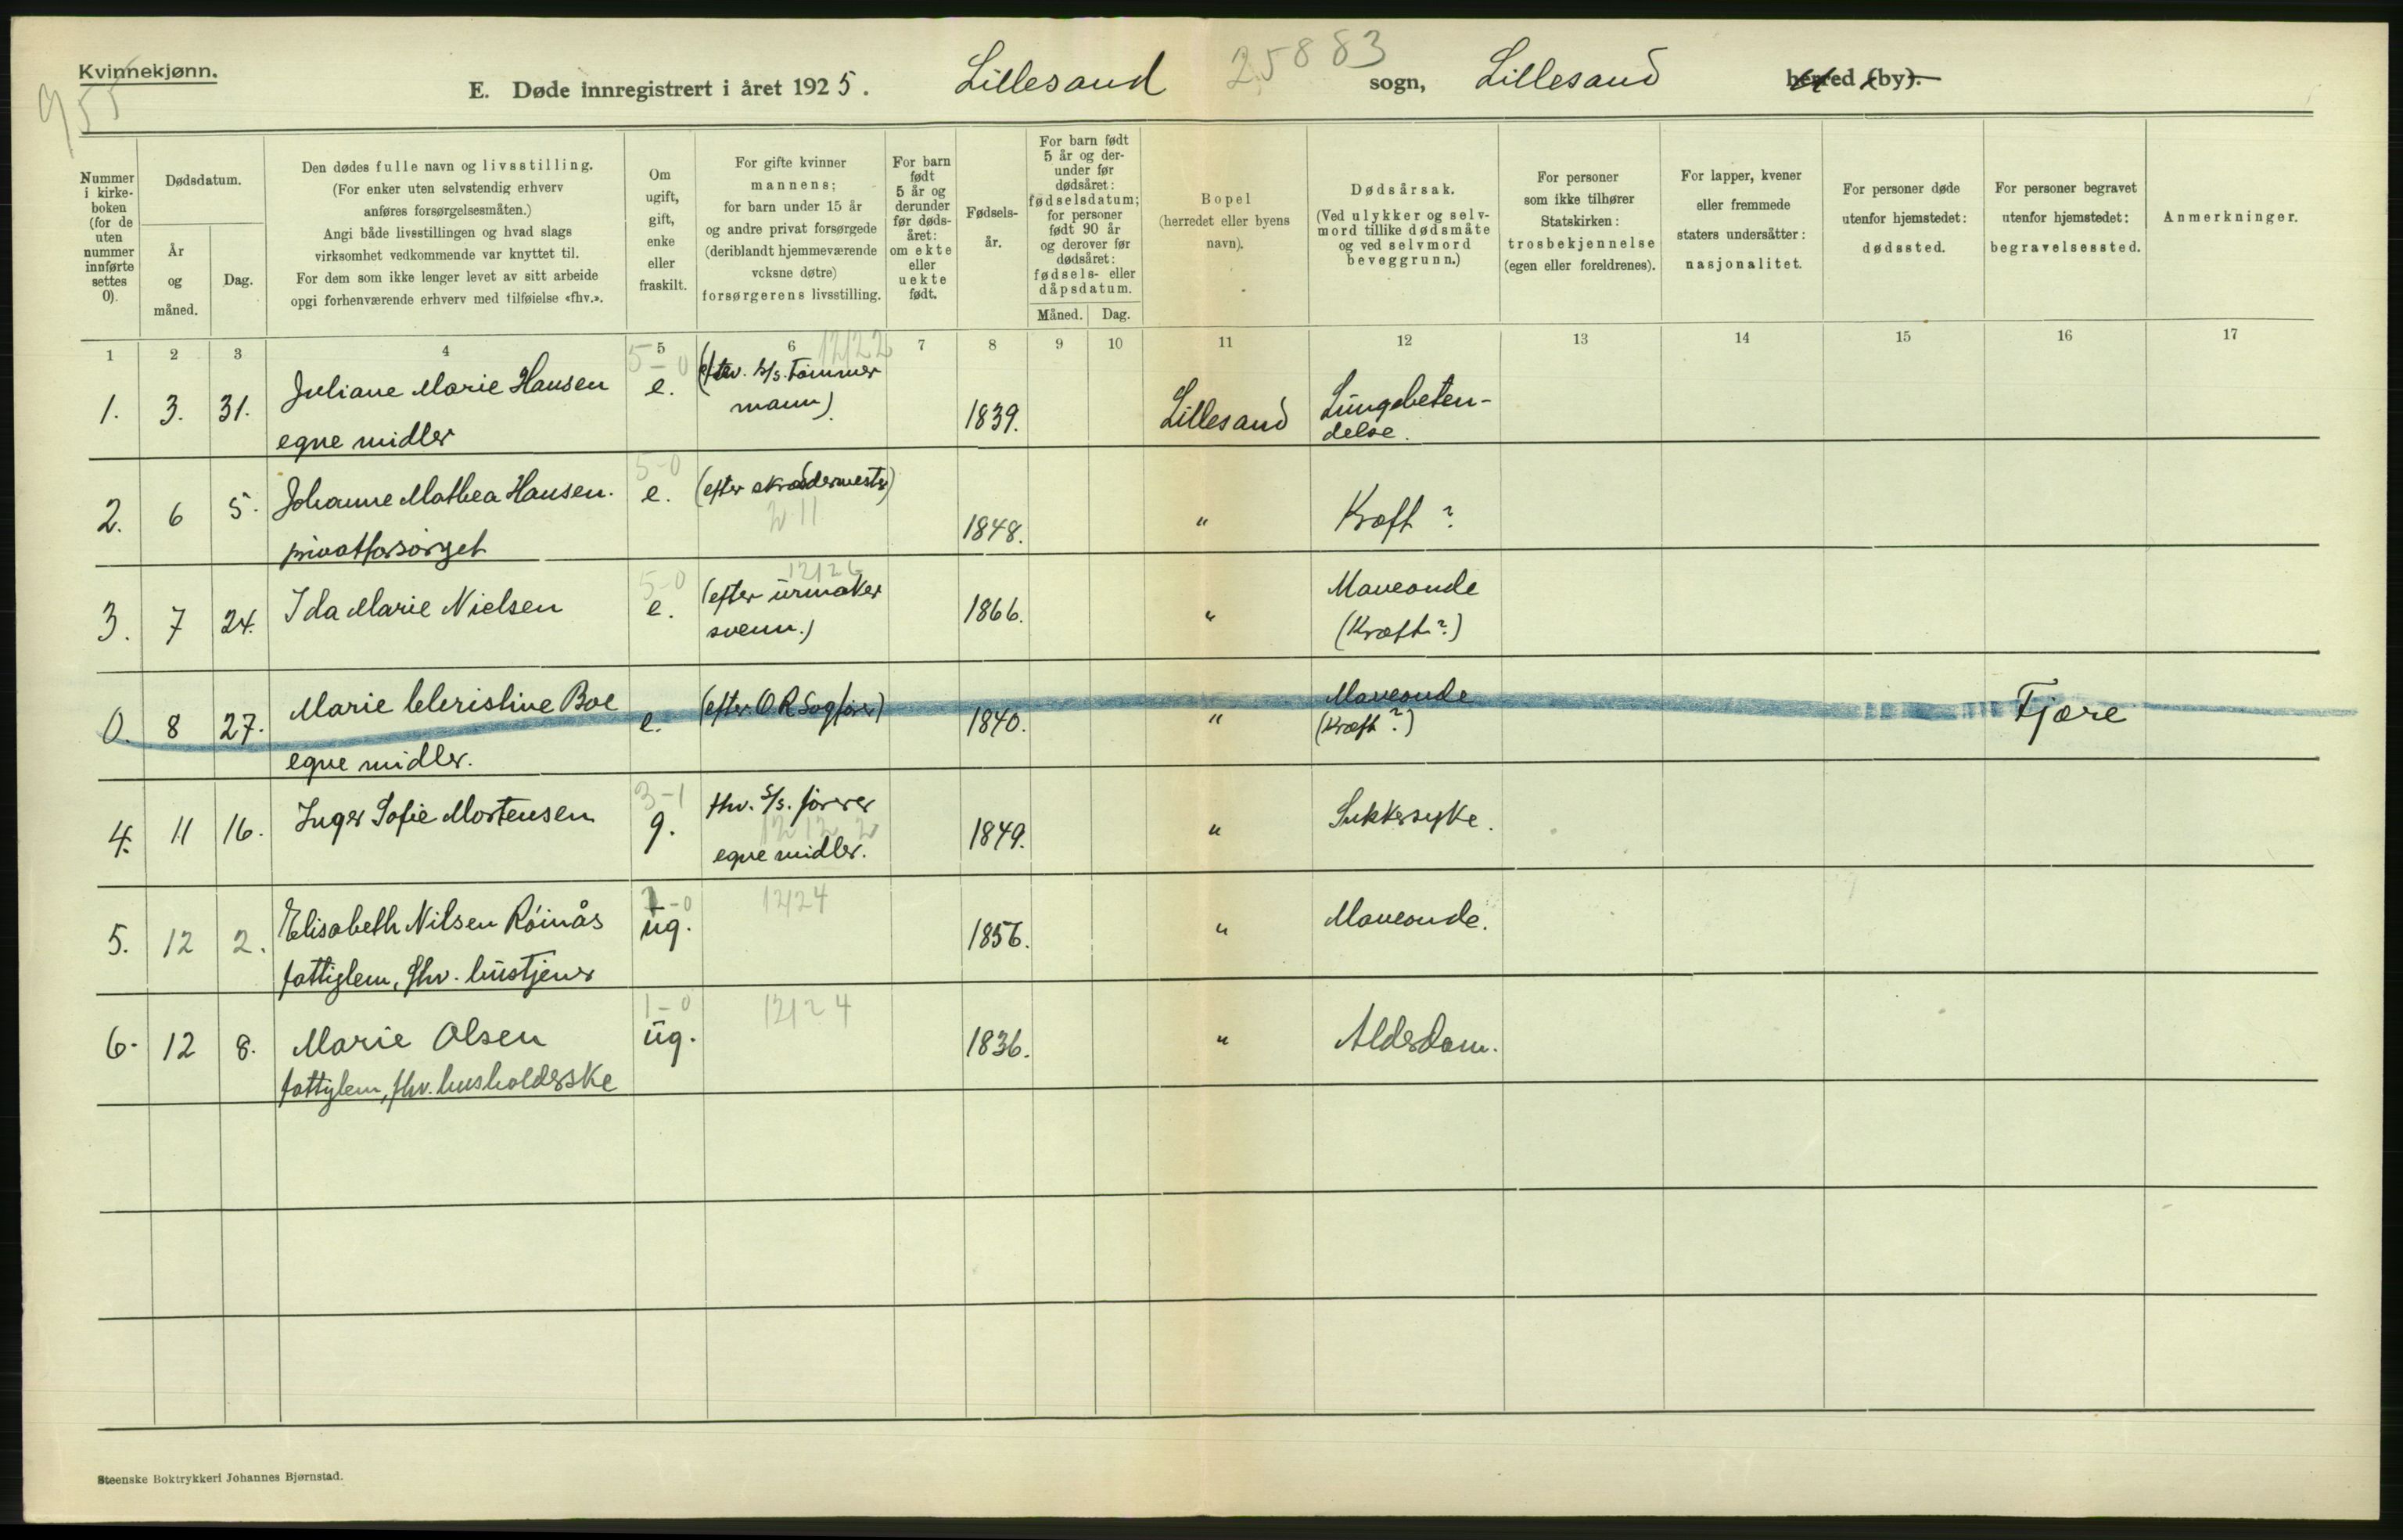 Kvinnekjønn.
955
E. Døde innregistrert i året 1925. Lillesand sogn, Lillesand herred (by).
25883
Nummer
i kirke-
boken
(for de
uten
nummer
innførte
settes
0).
Dødsdatum.
År
og
måned.
Dag.
Den dødes fulle navn og livsstilling.
(For enker uten selvstendig erhverv
anføres forsørgelsesmåten.)
Angi både livsstillingen og hvad slags
virksomhet vedkommende var knyttet til.
For dem som ikke lenger levet av sitt arbeide
opgi forhenværende erhverv med tilføielse «fhv.».
Om
ugift,
gift,
enke
eller
fraskilt.
For gifte kvinner
mannens;
for barn under 15 år
og andre privat forsørgede
(deriblandt hjemmeværende
voksne døtre)
forsørgerens livsstilling.
For barn
født
5 år og
derunder
før døds-
året:
om ekte
eller
uekte
født.
Fødsels-
år.
For barn født
5 år og der-
under før
dødsåret:
fødselsdatum;
for personer
født 90 år
og derover før
dødsåret:
fødsels- eller
dåpsdatum.
Måned. Dag.
Bopel
(herredet eller byens
navn).
Dødsårsak.
(Ved ulykker og selv-
mord tillike dødsmåte
og ved selvmord
beveggrunn.)
For personer
som ikke tilhører
Statskirken:
trosbekjennelse
(egen eller foreldrenes).
For lapper, kvener
eller fremmede
staters undersåtter:
nasjonalitet.
For personer døde
utenfor hjemstedet:
dødssted.
For personer begravet
utenfor hjemstedet:
begravelsessted.
Anmerkninger.
1 2 3 4 5 6 7 8 9 10 11 12 13 14 15 16 17
5-0 12122
1. 3. 31. Juliane Marie Hansen e. s/s. Tømmer 1839. Lillesand Lungebeten-
egne midler mann) delse.
5-0
2. 6 5. Johanne Mathea Hansen. e. (efter skræddermester) 1848. " Kræft ?
privatforsørget 2 11
5-0 12126
3. 7 24. Ida Marie Nielsen e. (efter urmaker 1866. " Maveonde
svenn.) (Kræft?)
0. 8 27. Marie Christine Boe e. (efter O R Sagfører) 1840. " Maveonde Fjære
egne midler. (Kræft ?)
3-1
4. 11 16. Inger Sofie Mortensen g. fhv. s/s. fører 1849. " Sukkersyke.
12 12 2
egne midler.
1-0 12124
5. 12 2. Elisabeth Nilsen Röinås ug. 1856. " Maveonde.
fattiglem, fhv. hustjener
1-0 12124
6. 12 8. Marie Olsen ug. 1836. " Alderdom.
fattiglem, fhv. husholderske
Steenske Boktrykkeri Johannes Bjørnstad.